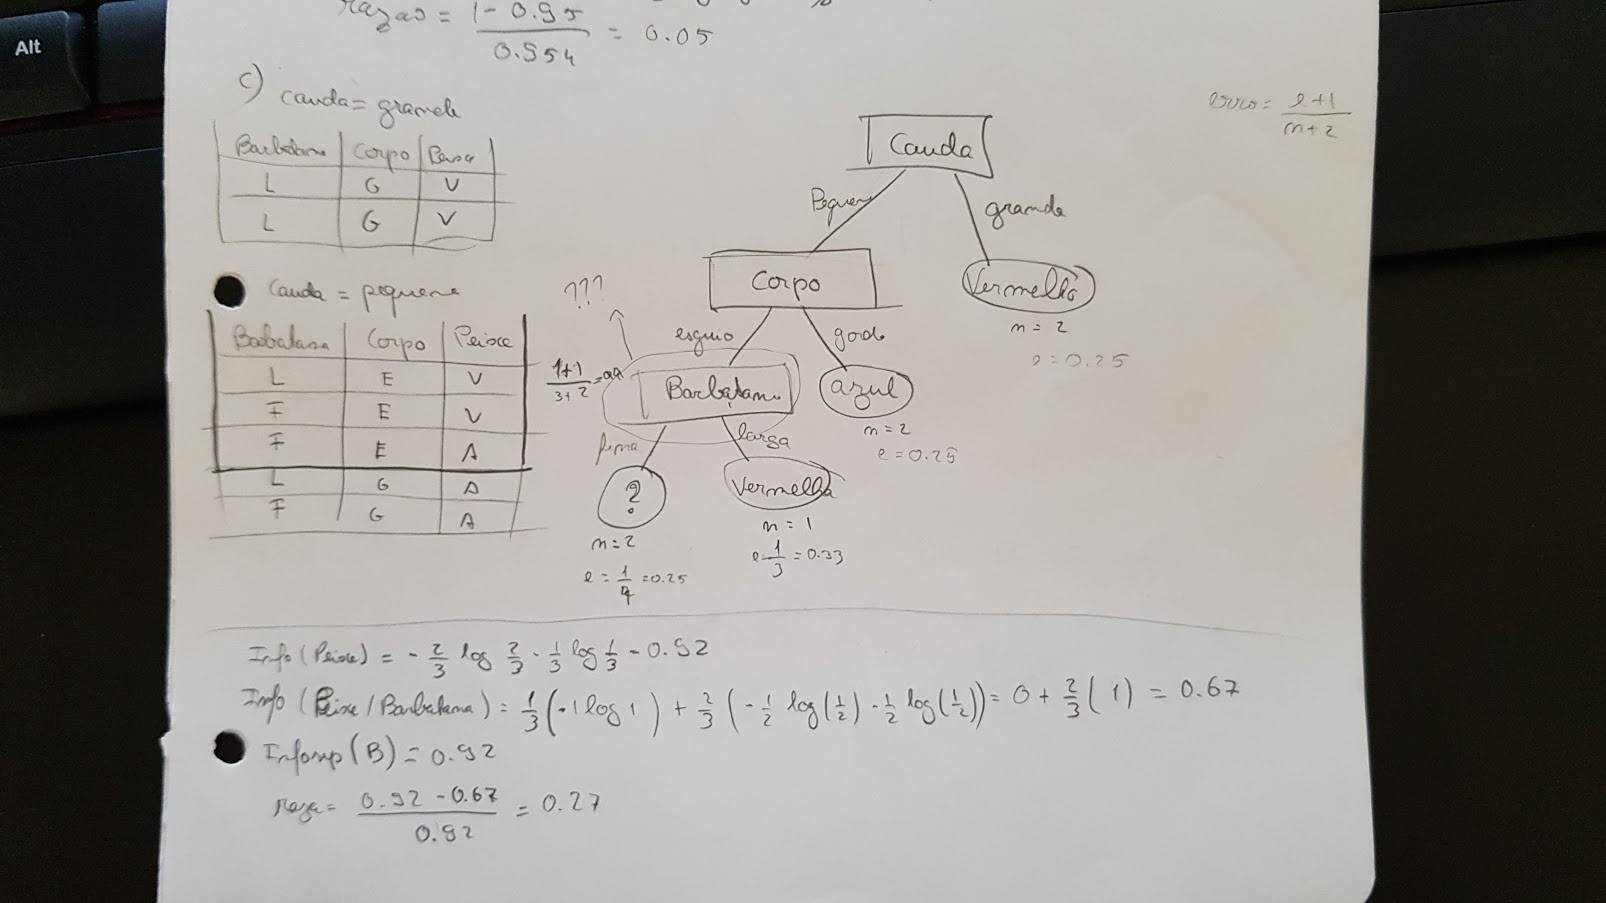 Alt
razao = 1 - 0.95 / 0.954 = 0.05
c) Cauda = grande
Barbatana | Corpo | Peixe
L | G | V
L | G | V
Cauda = pequena
Barbatana | Corpo | Peixe
L | E | V
F | E | V
F | E | A
L | G | A
F | G | A
erro = e+1 / n+2
Cauda
Pequena
grande
Corpo
Vermelho
n = 2
e = 0.25
???
esguio
gordo
1+1 / 3+2 =
Barbatana
azul
n = 2
e = 0.25
fina
larga
?
Vermelha
n = 2
e = 1/4 = 0.25
n = 1
e = 1/3 = 0.33
Info (Peixe) = - 2/3 log 2/3 - 1/3 log 1/3 = 0.92
Info (Peixe / Barbatana) = 1/3 (-1 log 1) + 2/3 (- 1/2 log(1/2) - 1/2 log(1/2)) = 0 + 2/3 (1) = 0.67
(B) = 0.92
raza = 0.92 - 0.67 / 0.92 = 0.27